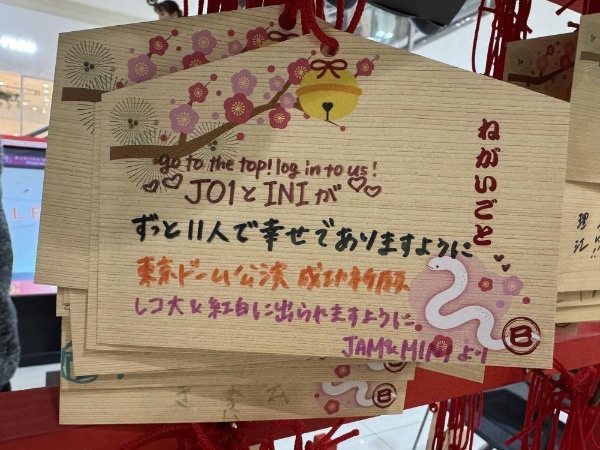 ねがいごと
go to the top! log in to us!
JO1とINIが
ずっと11人で幸せでありますように
東京ドーム公演 成功祈願
レコ大&紅白に出られますように。
JAM&MINIより
巳